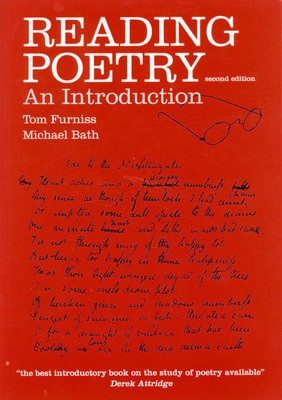 READING
POETRY
second edition
An Introduction
Tom Furniss
Michael Bath
Ode to the Nightingale
drowsy
Heart aches and a painful numbness falls
pains
My sense as though of hemlock I had drunk
Or emptied some dull opiate to the drains
past
One minute and Lethe wards had sunk
Tis not through envy of thy happy lot
But being too happy in thine happiness
That thou light winged dryad of the trees
In some melodious plot
Of beechen green and shadows numberless
Singest of summer in full throated ease
O for a draught of vintage that has been
Cooling an age in the deep delved earth
“the best introductory book on the study of poetry available”
Derek Attridge